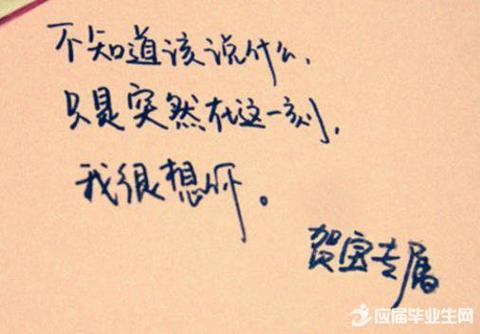 不知道该说什么,
只是突然在这一刻,
我很想你。
贺宝专属
应届毕业生网